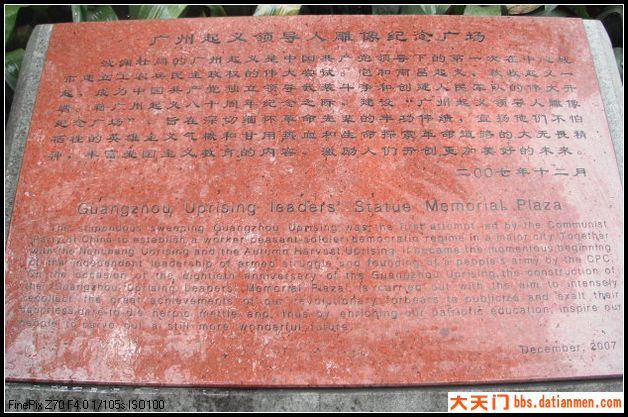 广州起义领导人雕像纪念广场
波澜壮阔的广州起义是中国共产党领导下的第一次在中心城
市建立工农兵民主政权的伟大尝试。它和南昌起义、秋收起义一
起，成为中国共产党独立领导武装斗争和创建人民军队的伟大开
端。在广州起义八十周年纪念之际，建设“广州起义领导人雕像
纪念广场”，旨在深切缅怀革命先辈的丰功伟绩，宣扬他们不怕
牺牲的英雄主义气概和甘用热血和生命探索革命道路的大无畏精
神，丰富爱国主义教育的内容，激励人们开创更加美好的未来。
二00七年十二月
Guangzhou Uprising leaders' Statue Memorial Plaza
The stupondous sweeping Guangzhou Uprising was the first attempt led by the Communist
Party of China to establish a worker-peasant-soldier democratic regime in a major city. Together
with the Nanchang Uprising and the Autumn Harvest Uprising, it became the momentous beginning
of the independent leadership of armed struggle and founding of a people's army by the CPC.
On the occasion of the eightieth anniversary of the Guangzhou Uprising, the construction of
the "Guangzhou Uprising Leaders' Memorial Plaza" is carried out with the aim to intensely
recollect the great achievements of our revolutionary forbears, to publicize and exalt their
fearless, dare-to-die heroic mettle, and, thus by enriching our patriotic education, inspire our
people to carve out a still more wonderful future.
December, 2007
FinePix Z70 F4.0 1/105s ISO100
大天门 bbs.datianmen.com